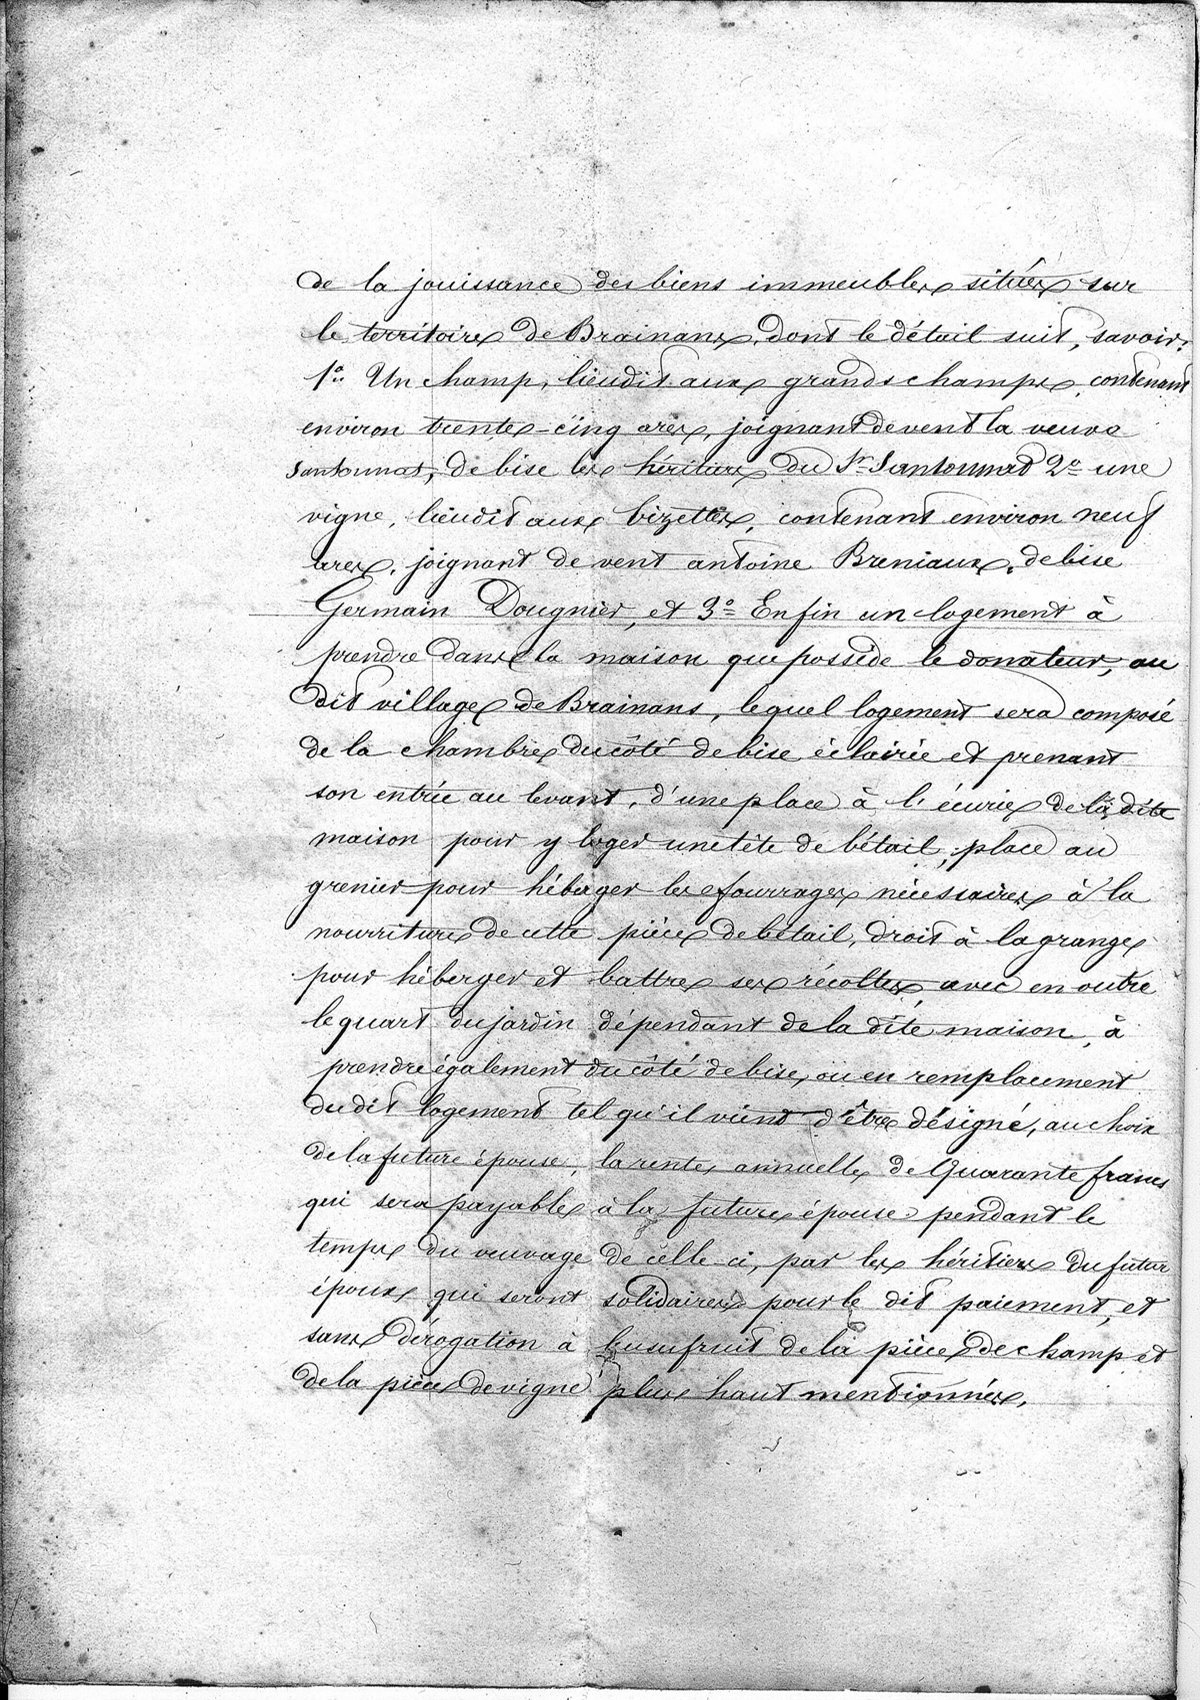 de la jouissance des biens immeubles situés sur
le territoire de Brainans, dont le détail suit, savoir:
1o. Un champ, lieudit aux grands champs, contenant
environ trente-cinq ares, joignant de vent la veuve
Santonnas, de bise les héritiers du Sr. Santonnas 2o une
vigne, lieudit aux bizettes, contenant environ neuf
ares, joignant de vent antoine Breniaux, de bise
Germain Dougnier, et 3o Enfin un logement à
prendre dans la maison que possède le donateur, au
dit village de Brainans, lequel logement sera composé
de la chambre du côté de bise éclairée et prenant
son entrée au levant, d'une place à l'écurie de la dite
maison pour y loger une tête de bétail, place au
grenier pour héberger les fourrages nécessaires à la
nourriture de cette pièce de bétail, droit à la grange
pour héberger et battre ses récoltes, avec en outre
le quart du jardin dépendant de la dite maison, à
prendre également du côté de bise, ou en remplacement
du dit logement tel qu'il vient d'être désigné, au choix
de la future épouse, la rente annuelle de Quarante francs
qui sera payable à la future épouse pendant le
temps du veuvage de celle-ci, par les héritiers du futur
époux qui seront solidaires pour le dit paiement, et
sans dérogation à l'usufruit de la pièce de champ et
de la pièce de vigne plus haut mentionnées.